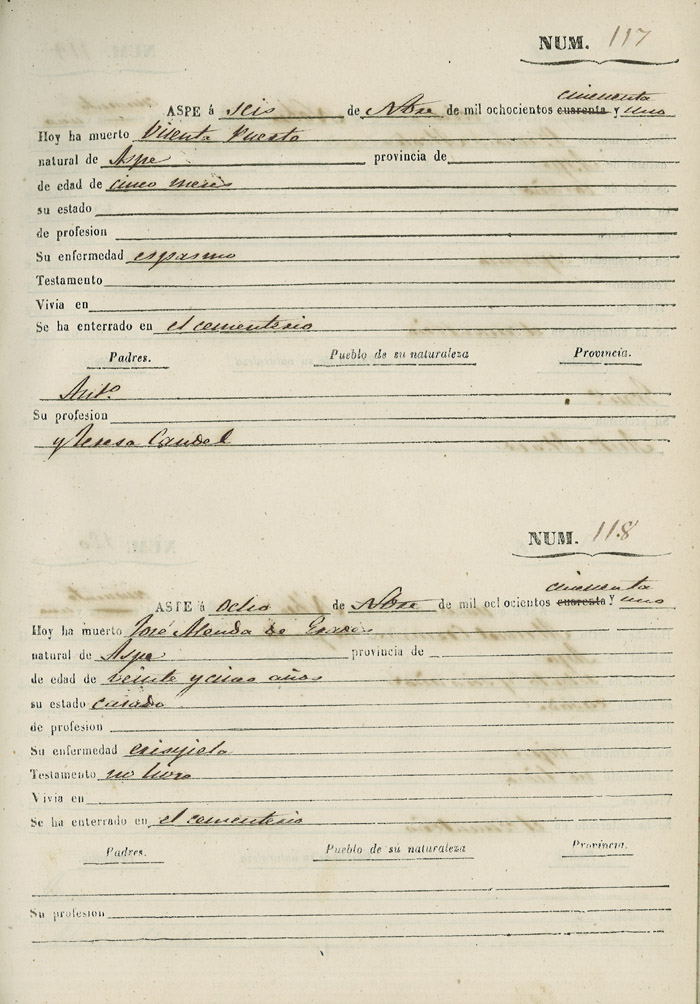 NUM. 117
cincuenta
ASPE á seis de Nbre de mil ochocientos cuarenta y uno
Hoy ha muerto Vicenta Puerto
natural de Aspe provincia de
de edad de cinco meses
su estado
de profesion
Su enfermedad espasmo
Testamento
Vivia en
Se ha enterrado en el cementerio
Padres. Pueblo de su naturaleza Provincia.
Anto.
Su profesion
y Teresa Candel
NUM. 118
cincuenta
ASPE á Ocho de Nbre de mil ochocientos cuarenta y uno
Hoy ha muerto José de
natural de Aspe provincia de
de edad de veinte y cinco años
su estado casado
de profesion
Su enfermedad
Testamento no hizo
Vivia en
Se ha enterrado en el cementerio
Padres. Pueblo de su naturaleza Provincia.
Su profesion